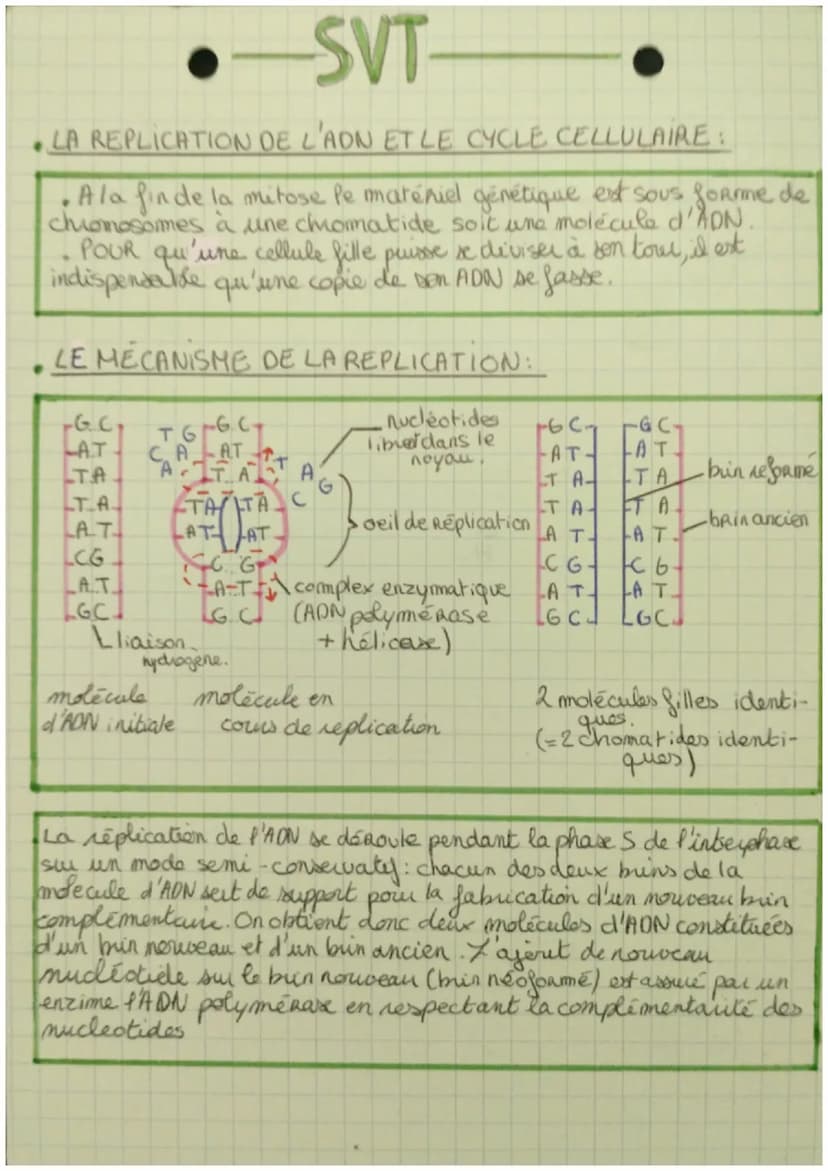 SVT
. LA REPLICATION DE L'ADN ET LE CYCLE CELLULAIRE :
. A la fin de la mitose le matériel génétique est sous forme de
chromosomes à une chromatide soit une molécule d'ADN.
. POUR qu'une cellule fille puisse se diviser à son tour, il est
indispensable qu'une copie de son ADN se fasse.
. LE MÉCANISME DE LA REPLICATION :
G C
A T
T A
T A
A T
C G
A T
G C
liaison
hydrogène.
molécule
d'ADN initiale
T G
C A
A
G C
A T
T A
TA TA
AT AT
C G
A-T
G C
T A G
C
nucléotides
libres dans le
noyau.
oeil de Réplication
complex enzymatique
(ADN polymérase
+ hélicase)
molécule en
cours de replication
G C
A T
T A
T A
A T
C G
A T
G C
G C
A T
T A
T A
A T
C G
A T
G C
brin reformé
brin ancien
2 molécules filles identi-
ques.
(= 2 chomatides identi-
ques)
La réplication de l'ADN se déroule pendant la phase S de l'interphase
sur un mode semi-conservatif : chacun des deux brins de la
molecule d'ADN sert de support pour la fabrication d'un nouveau brin
complémentaire. On obtient donc deux molécules d'ADN constituées
d'un brin nouveau et d'un brin ancien. L'ajout de nouveau
nucléotide sur le brin nouveau (brin néoformé) est assuré par un
enzime l'ADN polymérase en respectant la complémentarité des
nucleotides